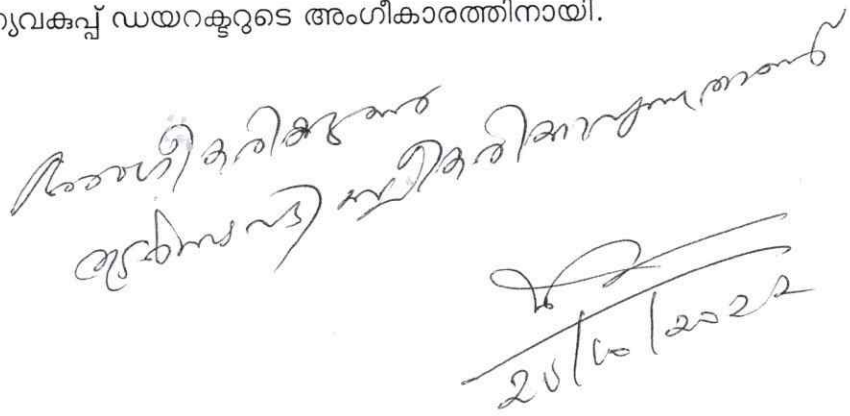 ്യവകുപ്പ് ഡയറക്ടറുടെ അംഗീകാരത്തിനായി.
അംഗീകരിക്കുന്നു
തുടർനടപടി സ്വീകരിക്കാവുന്നതാണ്